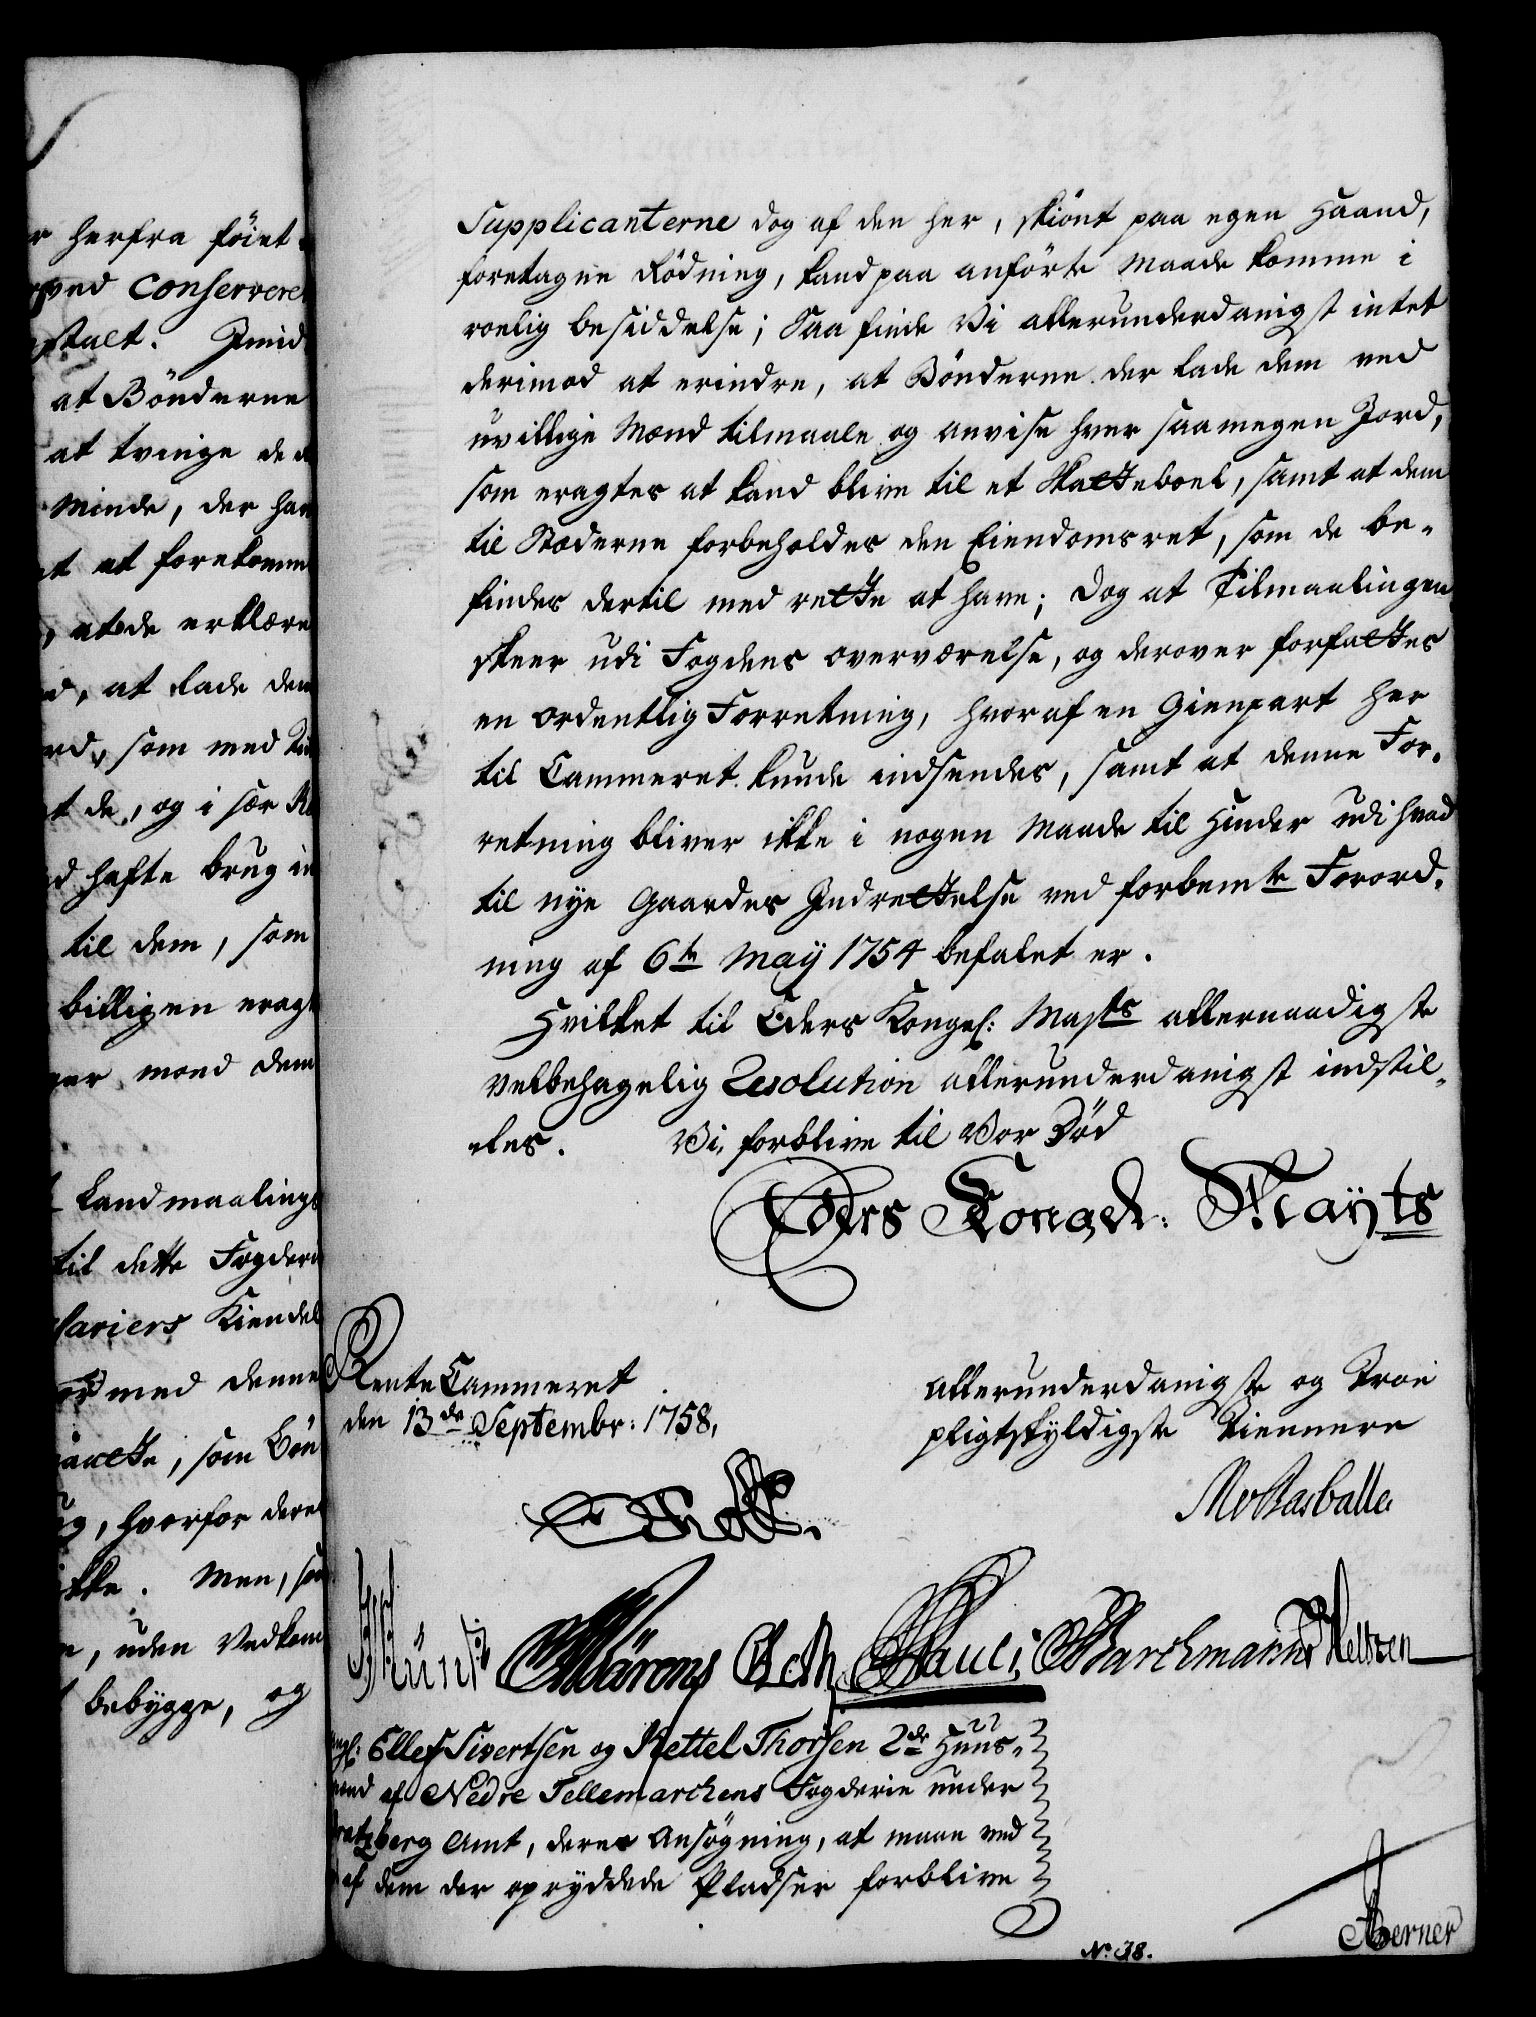 r herfra föiet
ved Conserveret
stalt. Imid
at Bönderne
at tvinge de
Minde, der har
at forekomme
, at de erklære
, at lade dem
som med
de, og i sær
hafte brug
til dem, som
billigen eragt
moed dem
Landmaalings
til dette Fogderi
Kiendel
med denne
, som Bön
, hvorfor deres
ikke. Men, som
, uden Vedkom
bebygge, og
Supplicanterne dog af den her, skiönt paa egen Haand,
foretagne Rödning, kand paa anförte Maade komme i
roelig besiddelse; Saa finde Vi allerunderdanigst intet
derimod at erindre, at Bönderne der lade dem ved
uvillige Mænd tilmaale og anvise hver saamegen Jord,
som eragtes at kand blive til et Skatteboel, samt at dem
til Stæderne forbeholdes den Eiendomsret, som de be-
findes dertil med rette at have; dog at Tilmaalingen
skeer udi Fogdens overværelse, og derover forfattes
en ordentlig Forretning, hvoraf en Gienpart her
til Cammeret kunde indsendes, samt at denne For-
retning bliver ikke i nogen Maade til Hinder udi hvad
til nye Gaardes Indrettelse ved forbemte Forord-
ning af 6te Maÿ 1754 befalet er.
Hvilket til Eders Kongel: Majts allernaadigste
velbehagelig Resolution allerunderdanigst indstil-
les. Vi forblive til Vor Död
Eders Kongel: Mayts
Rente Cammeret
den 13de Septembr: 1758,
allerunderdanigste og Troe
pligtskyldigste Tiennere
Holck.
Pauli Barchmann Heltzen
Angl: Ellef Sivertsen og Kettel Thorsen 2de Huus-
mænd af Nedre Tellemarchens Fogderie under
Bratzberg Amt, deres Ansögning, at maae ved
af dem der opryddede Pladser forblive
Berner
No. 38.